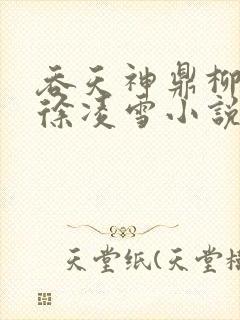 吞天神鼎柳
徐凌雪小說
天堂紙(天堂